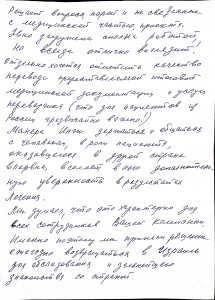 Решает вопросы порой и не связанные
с медицинской частью проекта.
Явно загружена своей работой.
Но всегда отлично выглядит!
Отдельно хочется отметить качество
перевода предоставленной итоговой
медицинской документации и услуг
переводчика (что для пациентов из
России чрезвычайно важно!)
Манера Инны держаться и общаться
с человеком, в роли пациента,
оказавшегося в другой стране
впервые, вселяет в него дополнитель-
ную уверенность в результатах
лечения.
Мы думаем, что это характерно для
всех сотрудников Вашей компании
Именно поэтому мы приняли решение
ежегодно возвращаться в Израиль
для обследования и дальнейшего
знакомства со страной.